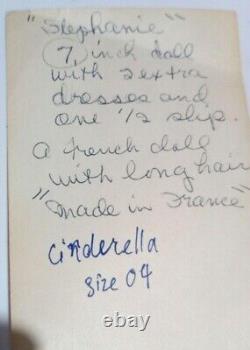 "Stephanie"
7, inch doll
with 2 extra
dresses and
one 1/2 slip.
a french doll
with long hair
"made in France"
cinderella
size 04
ebay